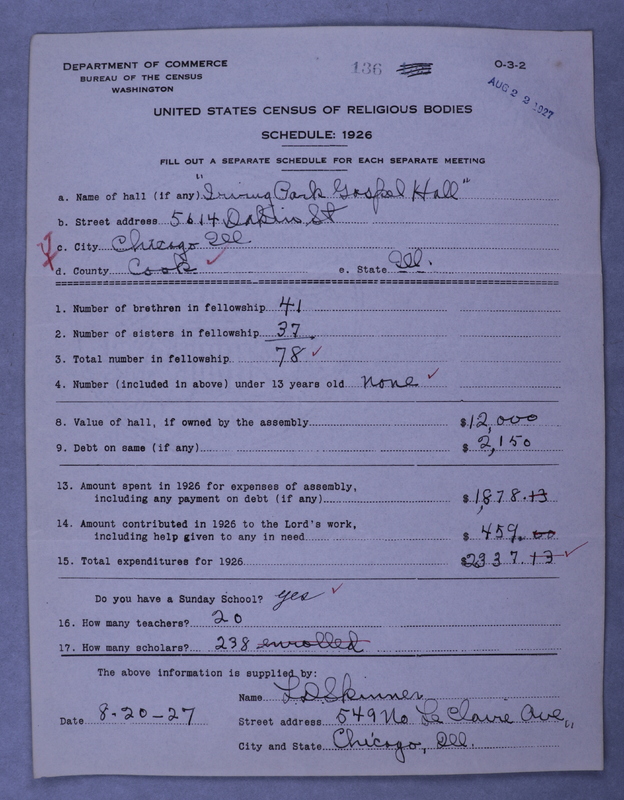 DEPARTMENT OF COMMERCE
BUREAU OF THE CENSUS
WASHINGTON
136
O-3-2
AUG 22 1927
UNITED STATES CENSUS OF RELIGIOUS BODIES
SCHEDULE: 1926
FILL OUT A SEPARATE SCHEDULE FOR EACH SEPARATE MEETING
a. Name of hall (if any) "Irving Park Gospel Hall"
b. Street address 5614 Dakin St
c. City Chicago Ill
d. County Cook e. State Ill.
1. Number of brethren in fellowship 41
2. Number of sisters in fellowship 37
3. Total number in fellowship 78
4. Number (included in above) under 13 years old none
8. Value of hall, if owned by the assembly $12,000
9. Debt on same (if any) $2,150
13. Amount spent in 1926 for expenses of assembly,
including any payment on debt (if any) $1,878.13
14. Amount contributed in 1926 to the Lord's work,
including help given to any in need $459.00
15. Total expenditures for 1926 $2337.13
Do you have a Sunday School? yes
16. How many teachers? 20
17. How many scholars? 238 enrolled
The above information is supplied by:
Name L D Skinner
Date 8-20-27
Street address 549 No Le Claire Ave,
City and State Chicago, Ill.